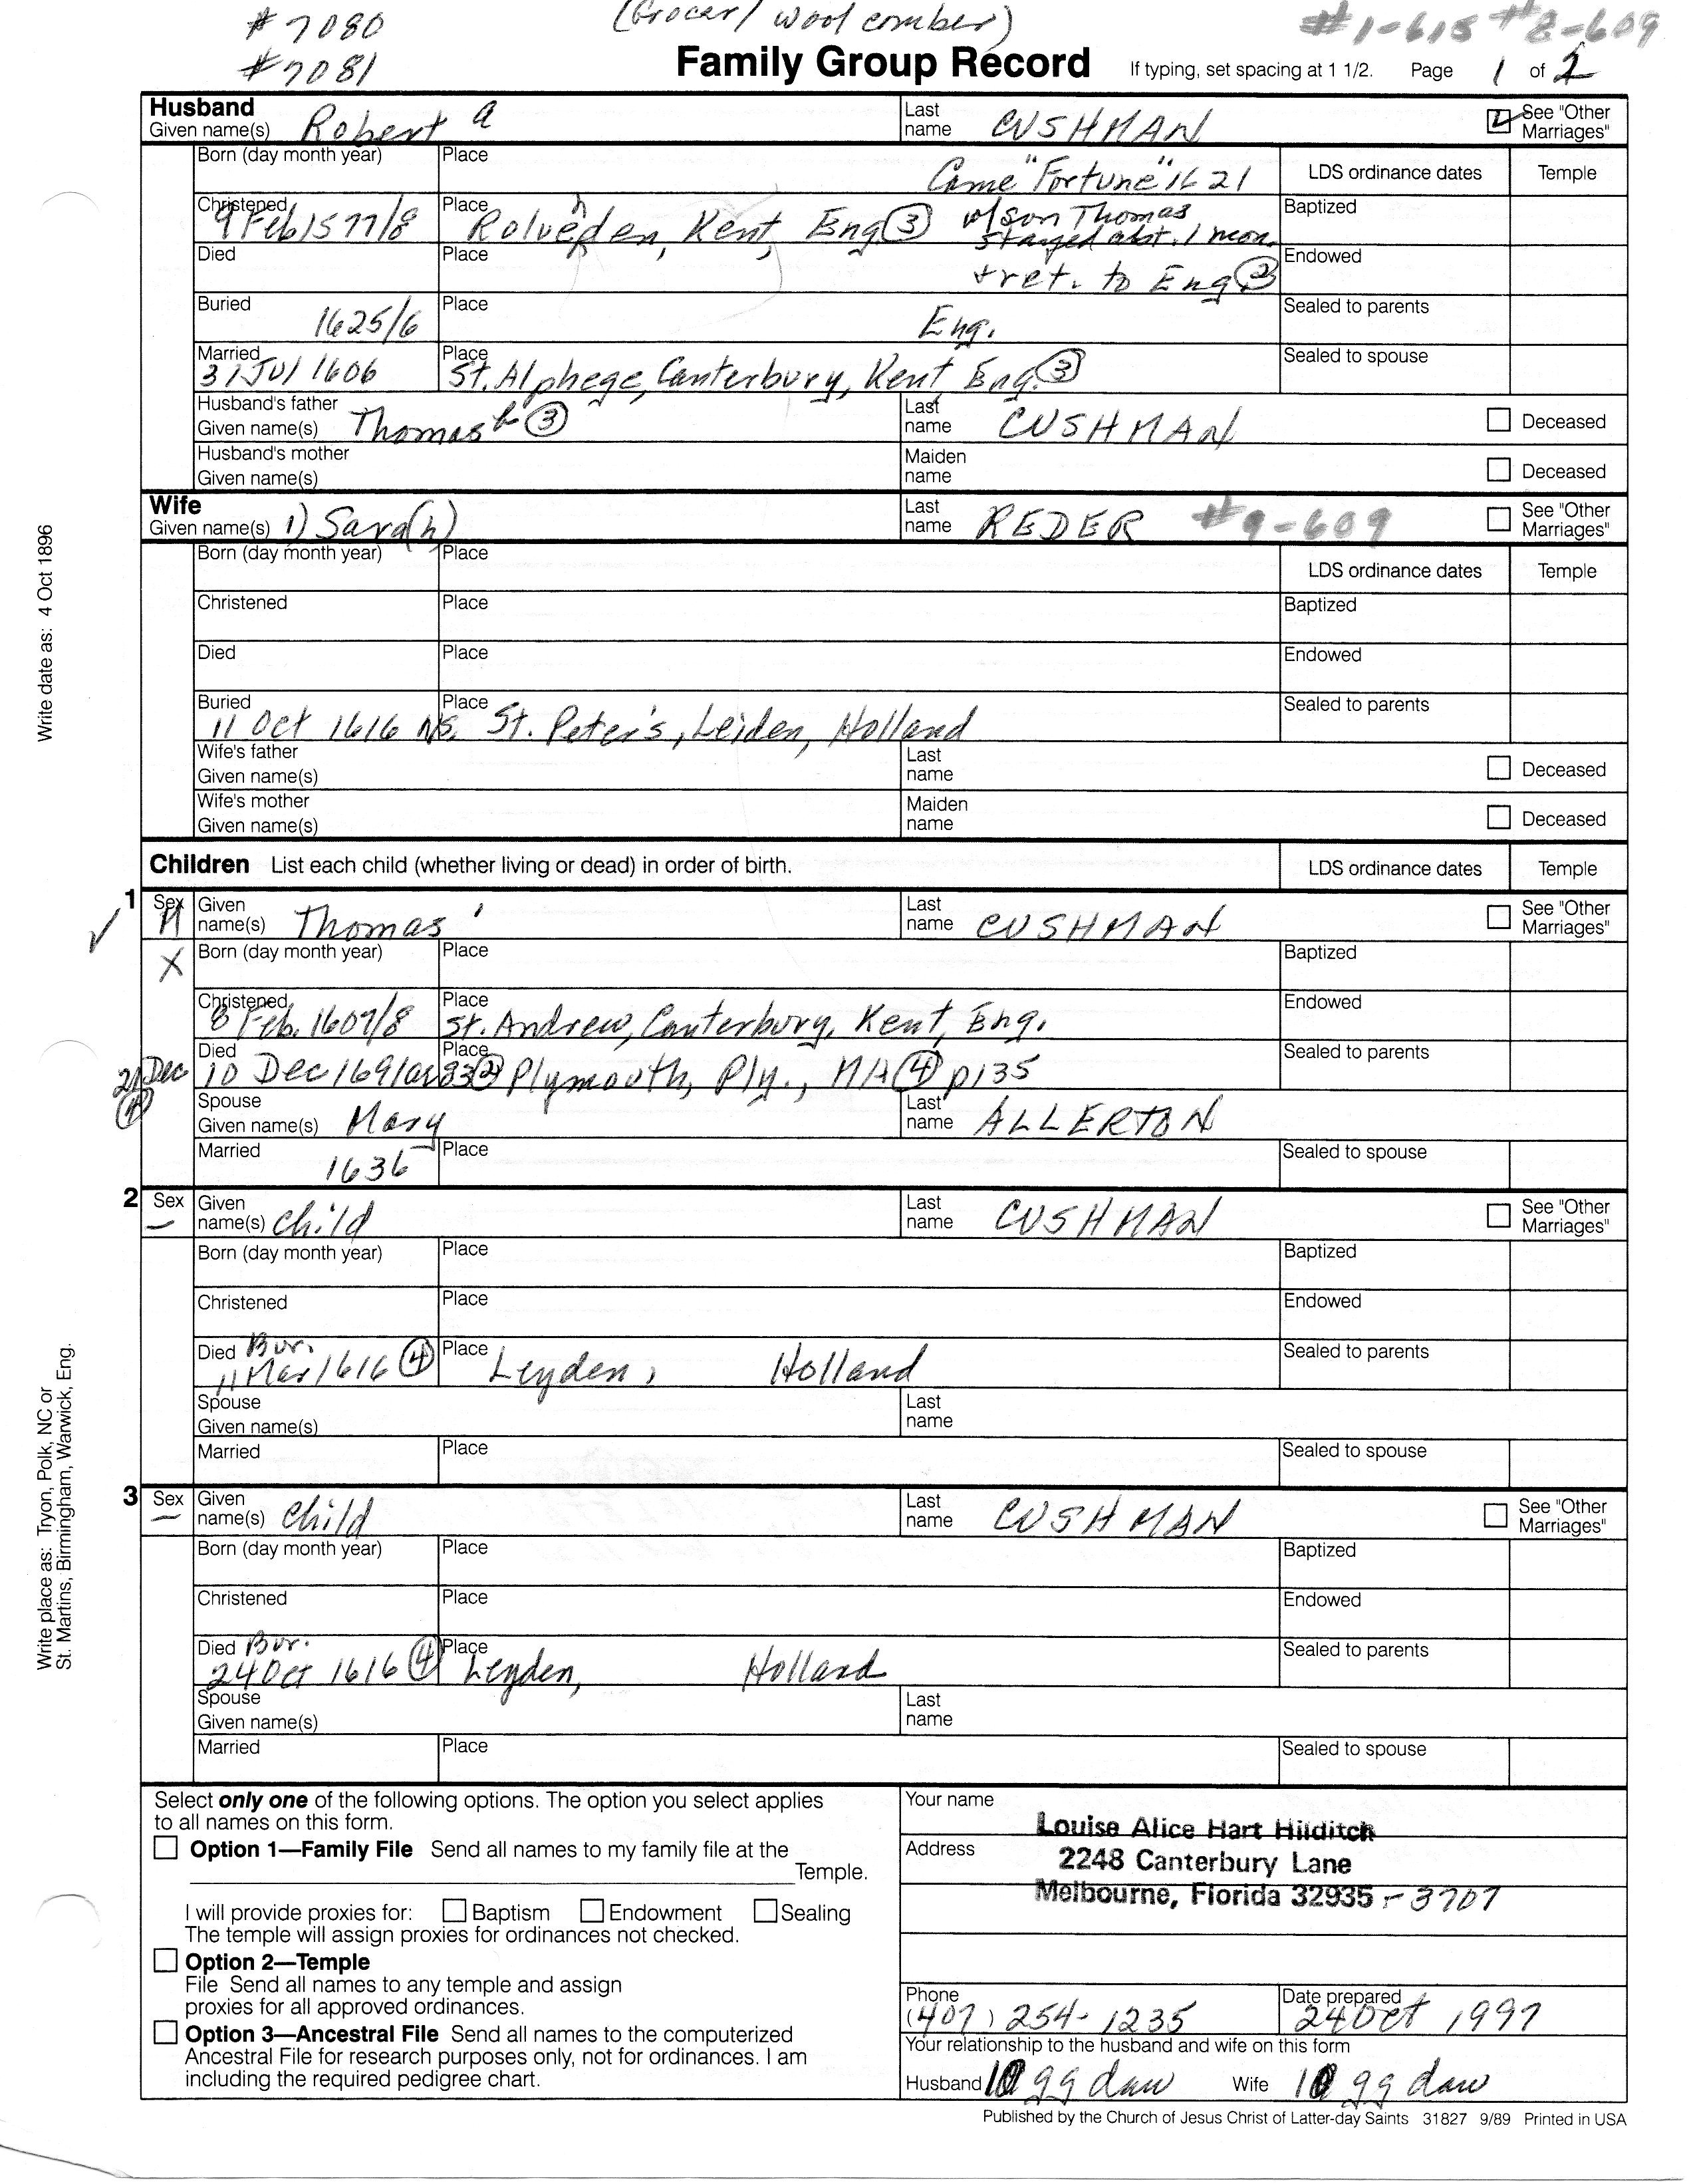 # 7080
(Grocer / wool comber)
#1-615 #8-609
# 7081
Family Group Record
If typing, set spacing at 1 1/2. Page 1 of 2
Husband
Given name(s) Robert a
Last name CUSHMAN
See "Other Marriages"
Born (day month year) Place
Came "Fortune" 1621
LDS ordinance dates Temple
Christened 9 Feb 1577/8 Place Rolvenden, Kent, Eng ③ w/son Thomas
stayed abt. 1 mon.
Baptized
Died Place + ret. to Eng ③
Endowed
Buried 1625/6 Place Eng.
Sealed to parents
Married 31 Jul 1606 Place St. Alphege, Canterbury, Kent Eng. ③
Sealed to spouse
Husband's father
Given name(s) Thomas b ③
Last name CUSHMAN
Deceased
Husband's mother
Given name(s)
Maiden name
Deceased
Wife
Given name(s) 1) Sara(h)
Last name REDER #9-609
See "Other Marriages"
Born (day month year) Place
LDS ordinance dates Temple
Christened Place
Baptized
Died Place
Endowed
Buried 11 Oct 1616 NS. Place St. Peter's, Leiden, Holland
Sealed to parents
Wife's father
Given name(s)
Last name
Deceased
Wife's mother
Given name(s)
Maiden name
Deceased
Children List each child (whether living or dead) in order of birth.
LDS ordinance dates Temple
1 Sex M Given name(s) Thomas ' Last name CUSHMAN
See "Other Marriages"
X Born (day month year) Place
Baptized
Christened 8 Feb. 1607/8 Place St. Andrew, Canterbury, Kent, Eng.
Endowed
21 Dec ④ Died 10 Dec 1691 ae 83 ② Place Plymouth, Ply., MA ④ p135
Sealed to parents
Spouse
Given name(s) Mary
Last name ALLERTON
Married 1636 Place
Sealed to spouse
2 Sex – Given name(s) child Last name CUSHMAN
See "Other Marriages"
Born (day month year) Place
Baptized
Christened Place
Endowed
Died Bur. 11 Mar 1616 ④ Place Leyden, Holland
Sealed to parents
Spouse
Given name(s)
Last name
Married Place
Sealed to spouse
3 Sex – Given name(s) child Last name CUSHMAN
See "Other Marriages"
Born (day month year) Place
Baptized
Christened Place
Endowed
Died Bur. 24 Oct 1616 ④ Place Leyden, Holland
Sealed to parents
Spouse
Given name(s)
Last name
Married Place
Sealed to spouse
Select only one of the following options. The option you select applies
to all names on this form.
Option 1—Family File Send all names to my family file at the
Temple.
I will provide proxies for: Baptism Endowment Sealing
The temple will assign proxies for ordinances not checked.
Option 2—Temple
File Send all names to any temple and assign
proxies for all approved ordinances.
Option 3—Ancestral File Send all names to the computerized
Ancestral File for research purposes only, not for ordinances. I am
including the required pedigree chart.
Your name Louise Alice Hart Hilditch
Address 2248 Canterbury Lane
Melbourne, Florida 32935 - 3707
Phone (407) 254-1235
Date prepared 24 Oct 1997
Your relationship to the husband and wife on this form
Husband 10 gg dau Wife 10 gg dau
Published by the Church of Jesus Christ of Latter-day Saints 31827 9/89 Printed in USA
Write date as: 4 Oct 1896
Write place as: Tryon, Polk, NC or
St. Martins, Birmingham, Warwick, Eng.